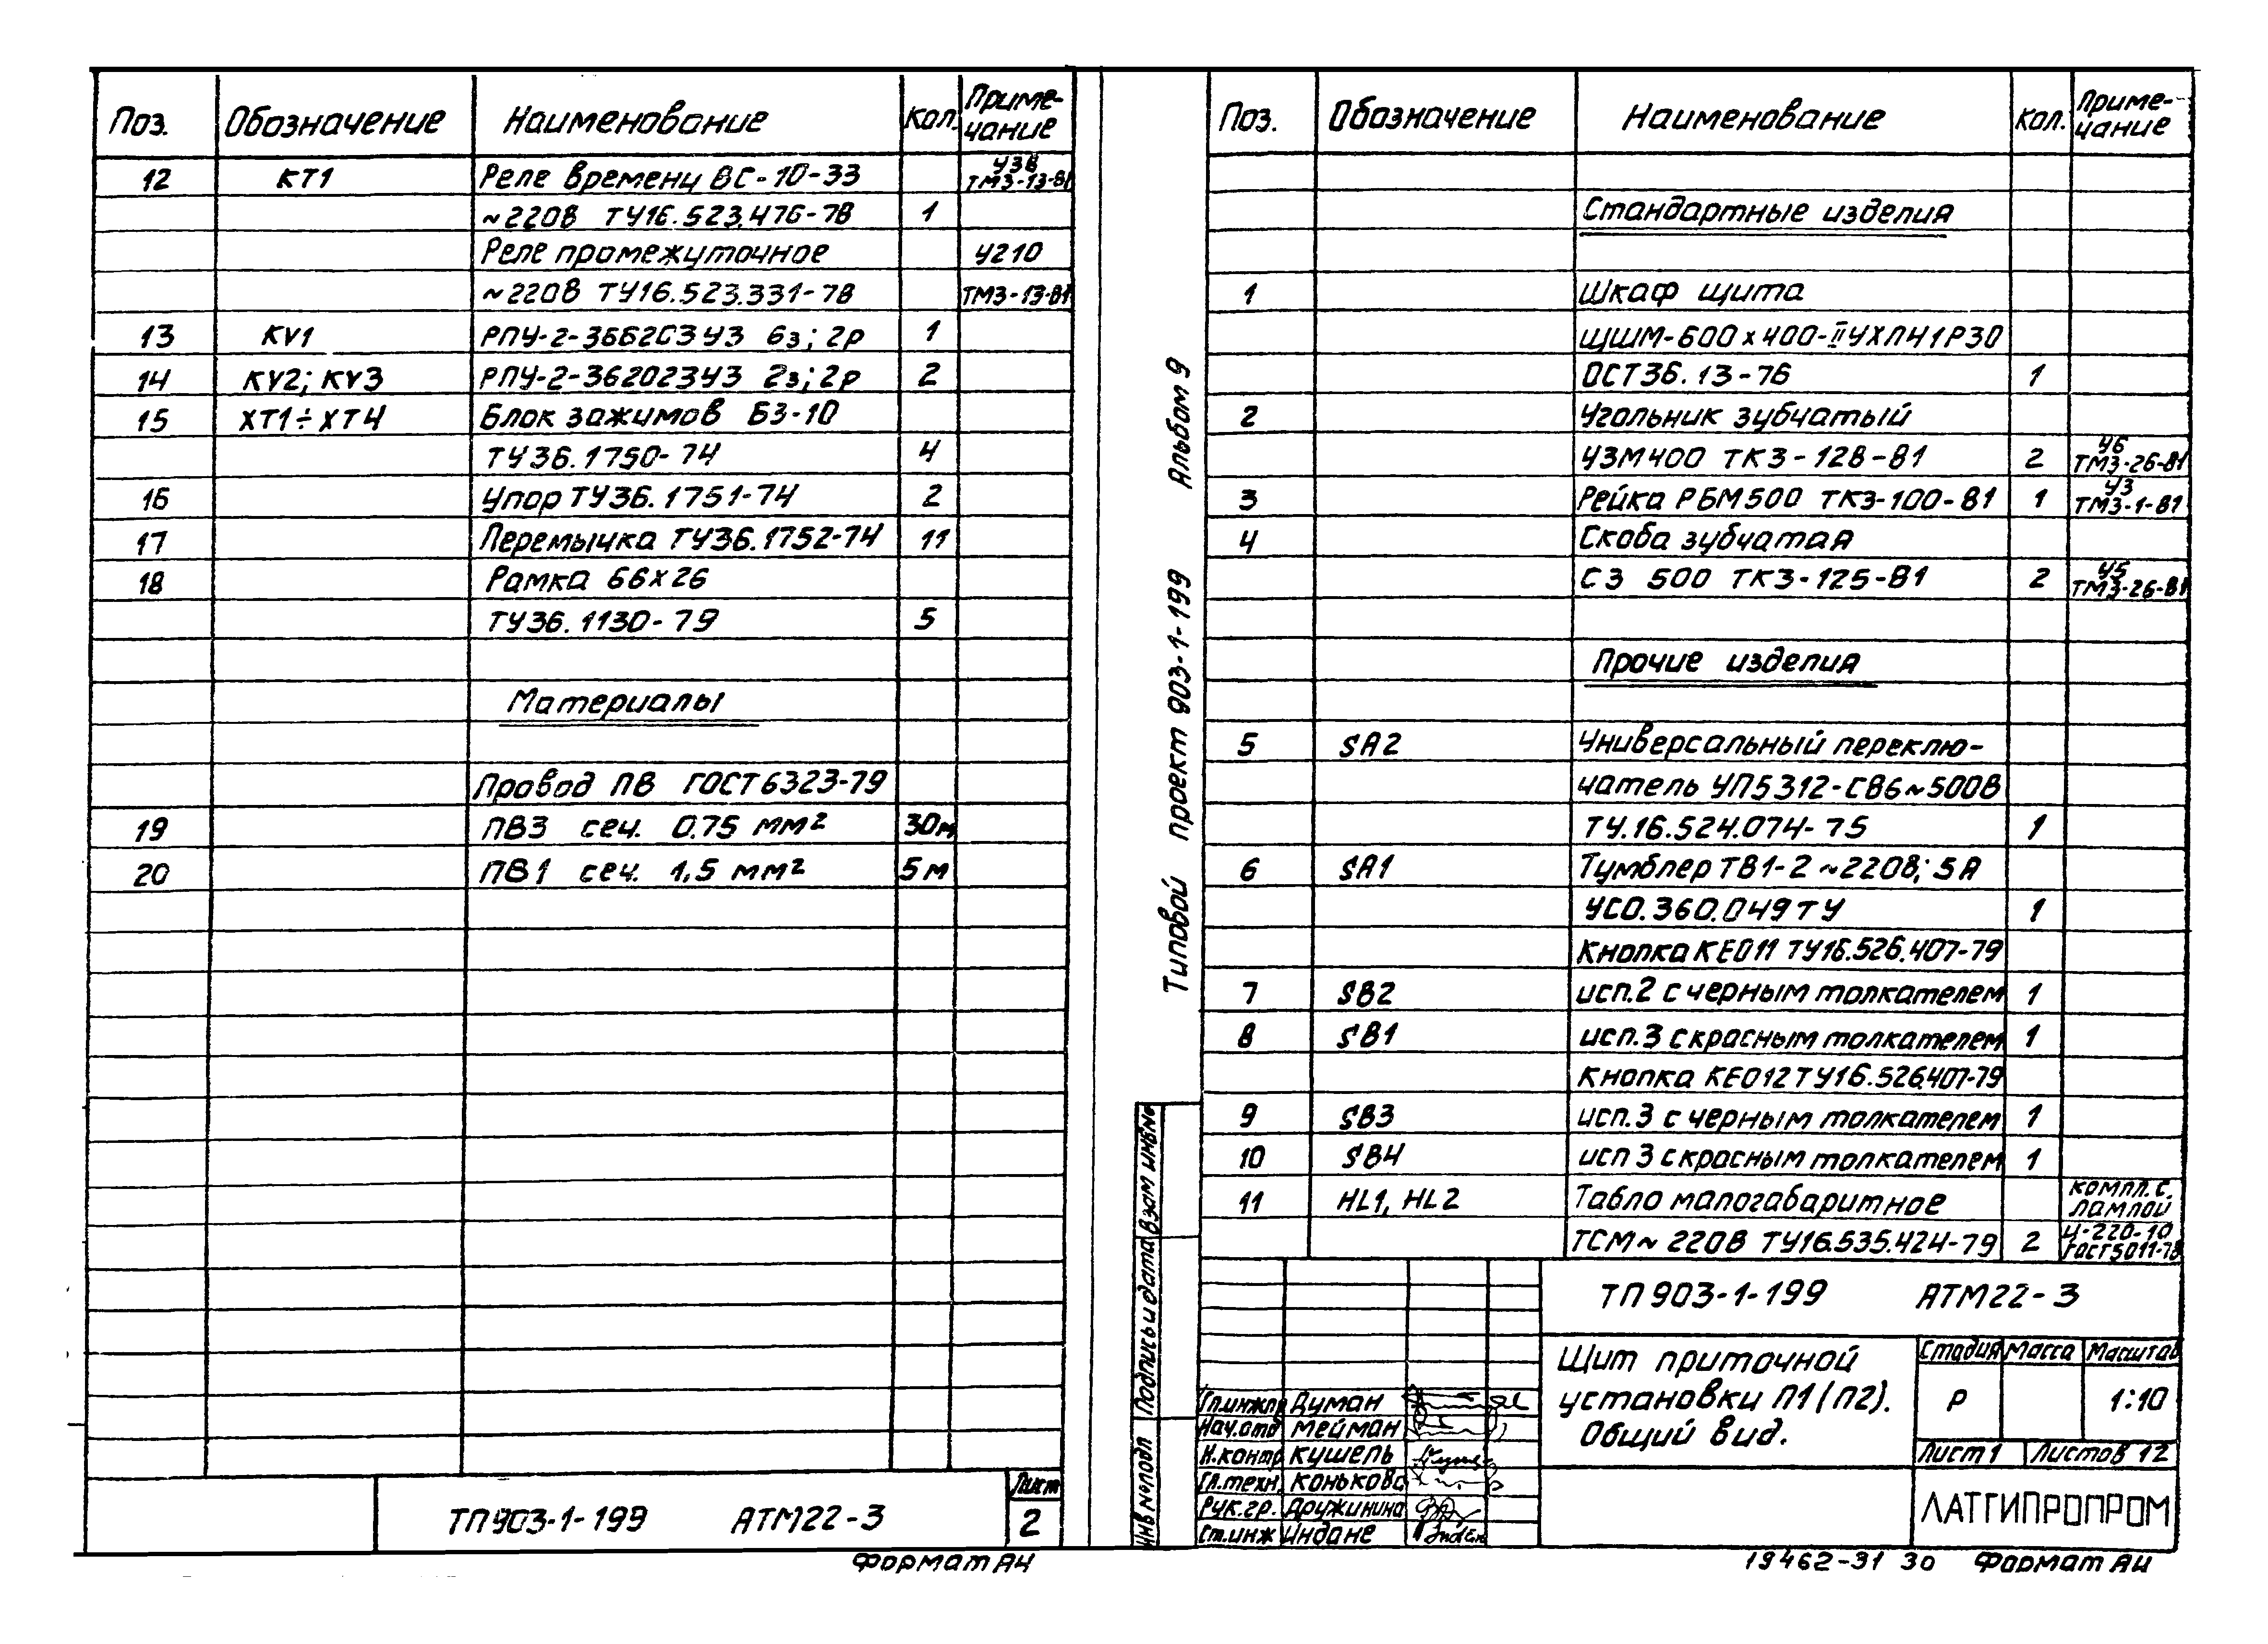 Поз. Обозначение Наименование Кол. Приме-
чание
12 КТ1 Реле времени ВС-10-33 У3В
ТМ3-13-81
~220В ТУ16.523.476-78 1
Реле промежуточное У210
~220В ТУ16.523.331-78 ТМ3-13-81
13 KV1 РПУ-2-366203У3 6з; 2р 1
14 KV2; KV3 РПУ-2-362023У3 2з; 2р 2
15 ХТ1÷ХТ4 Блок зажимов БЗ-10
ТУ36.1750-74 4
16 Упор ТУ36.1751-74 2
17 Перемычка ТУ36.1752-74 11
18 Рамка 66х26
ТУ36.1130-79 5
Материалы
Провод ПВ ГОСТ6323-79
19 ПВ3 сеч. 0.75 мм² 30м
20 ПВ1 сеч. 1,5 мм² 5м
ТП903-1-199 АТМ22-3
Лист
2
Формат А4
Альбом 9
Типовой проект 903-1-199
Взам инв№
Подпись и дата
Инв № подл
Поз. Обозначение Наименование Кол. Приме-
чание
Стандартные изделия
1 Шкаф щита
ЩШМ-600х400-IIУХЛ41Р30
ОСТ36.13-76 1
2 Угольник зубчатый У6
УЗМ400 ТК3-128-81 2 ТМ3-26-81
У3
3 Рейка РБМ500 ТК3-100-81 1 ТМ3-1-81
4 Скоба зубчатая
У5
СЗ 500 ТК3-125-81 2 ТМ3-26-81
Прочие изделия
5 SA2 Универсальный переклю-
чатель УП5312-С86~500В
ТУ.16.524.074-75 1
6 SA1 Тумблер ТВ1-2 ~220В; 5А
УСО.360.049ТУ 1
Кнопка КЕ011 ТУ16.526.407-79
7 SB2 исп.2 с черным толкателем 1
8 SB1 исп.3 с красным толкателем 1
Кнопка КЕ012ТУ16.526.407-79
9 SB3 исп.3 с черным толкателем 1
10 SB4 исп 3 с красным толкателем 1
11 HL1, HL2 Табло малогабаритное компл. с.
лампой
ТСМ~ 220В ТУ16.535.424-79 2 Ц-220-10
ГОСТ5011-78
ТП903-1-199 АТМ22-3
Щит приточной
установки П1(П2).
Общий вид.
Стадия Масса Масштаб
Р 1:10
Лист 1 Листов 12
ЛАТГИПРОПРОМ
Гл.инж.пр Думан
Нач.отд Мейман
Н.контр Кушель
Гл.техн. Конькова
Рук.гр. Дружинина
Ст.инж Индане
19462-31 30 Формат А4